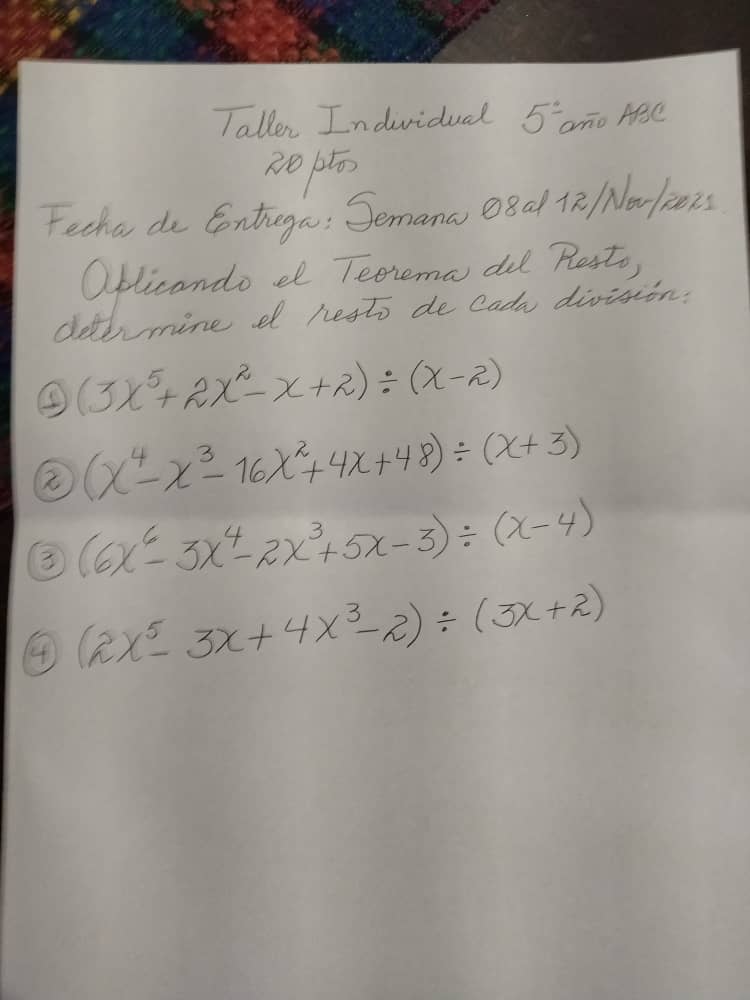 Taller Individual 5° año ABC
20 ptos
Fecha de Entrega: Semana 08 al 12/Nov/2021
Aplicando el Teorema del Resto,
determine el resto de cada división:
① (3x⁵+2x²-x+2)÷(x-2)
② (x⁴-x³-16x²+4x+48)÷(x+3)
③ (6x⁶-3x⁴-2x³+5x-3)÷(x-4)
④ (2x⁵-3x+4x³-2)÷(3x+2)